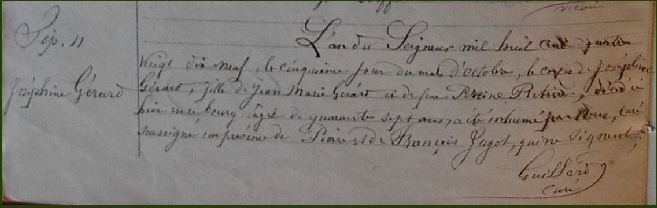 Sép. 11
Joséphine Gérard
L'an du Seigneur mil huit cent quatre
vingt dix neuf, le cinquième jour du mois d'octobre, le corps de Joséphine
Gérard, fille de Jean Marie Gérard et de feue Perrine, décédée
hier au bourg âgée de quarante sept ans, a été inhumé par nous, curé
soussigné en présence de Pierre et de François Jagot, qui ne signent
Guillard
curé